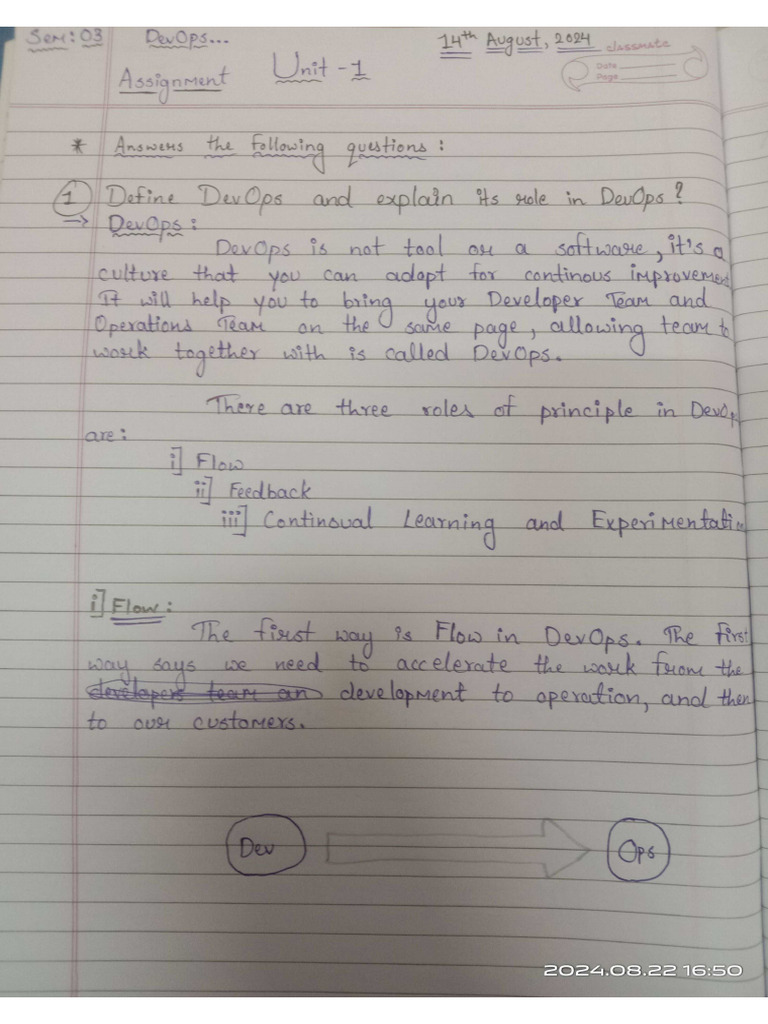 Sem: 03 DevOps... 14th August, 2024
classmate
Assignment Unit - 1
Date
Page
* Answers the following questions :
1 Define DevOps and explain its role in DevOps ?
→ DevOps :
DevOps is not tool or a software, it's a
culture that you can adapt for continous improvemen
It will help you to bring your Developer Team and
Operations Team on the same page, allowing team to
work together with is called DevOps.
There are three roles of principle in DevOp
are :
i] Flow
ii] Feedback
iii] Continoual Learning and Experimentatio
i] Flow :
The first way is Flow in DevOps. The first
way says we need to accelerate the work from the
developers team an development to operation, and then
to our customers.
Dev Ops
2024.08.22 16:50